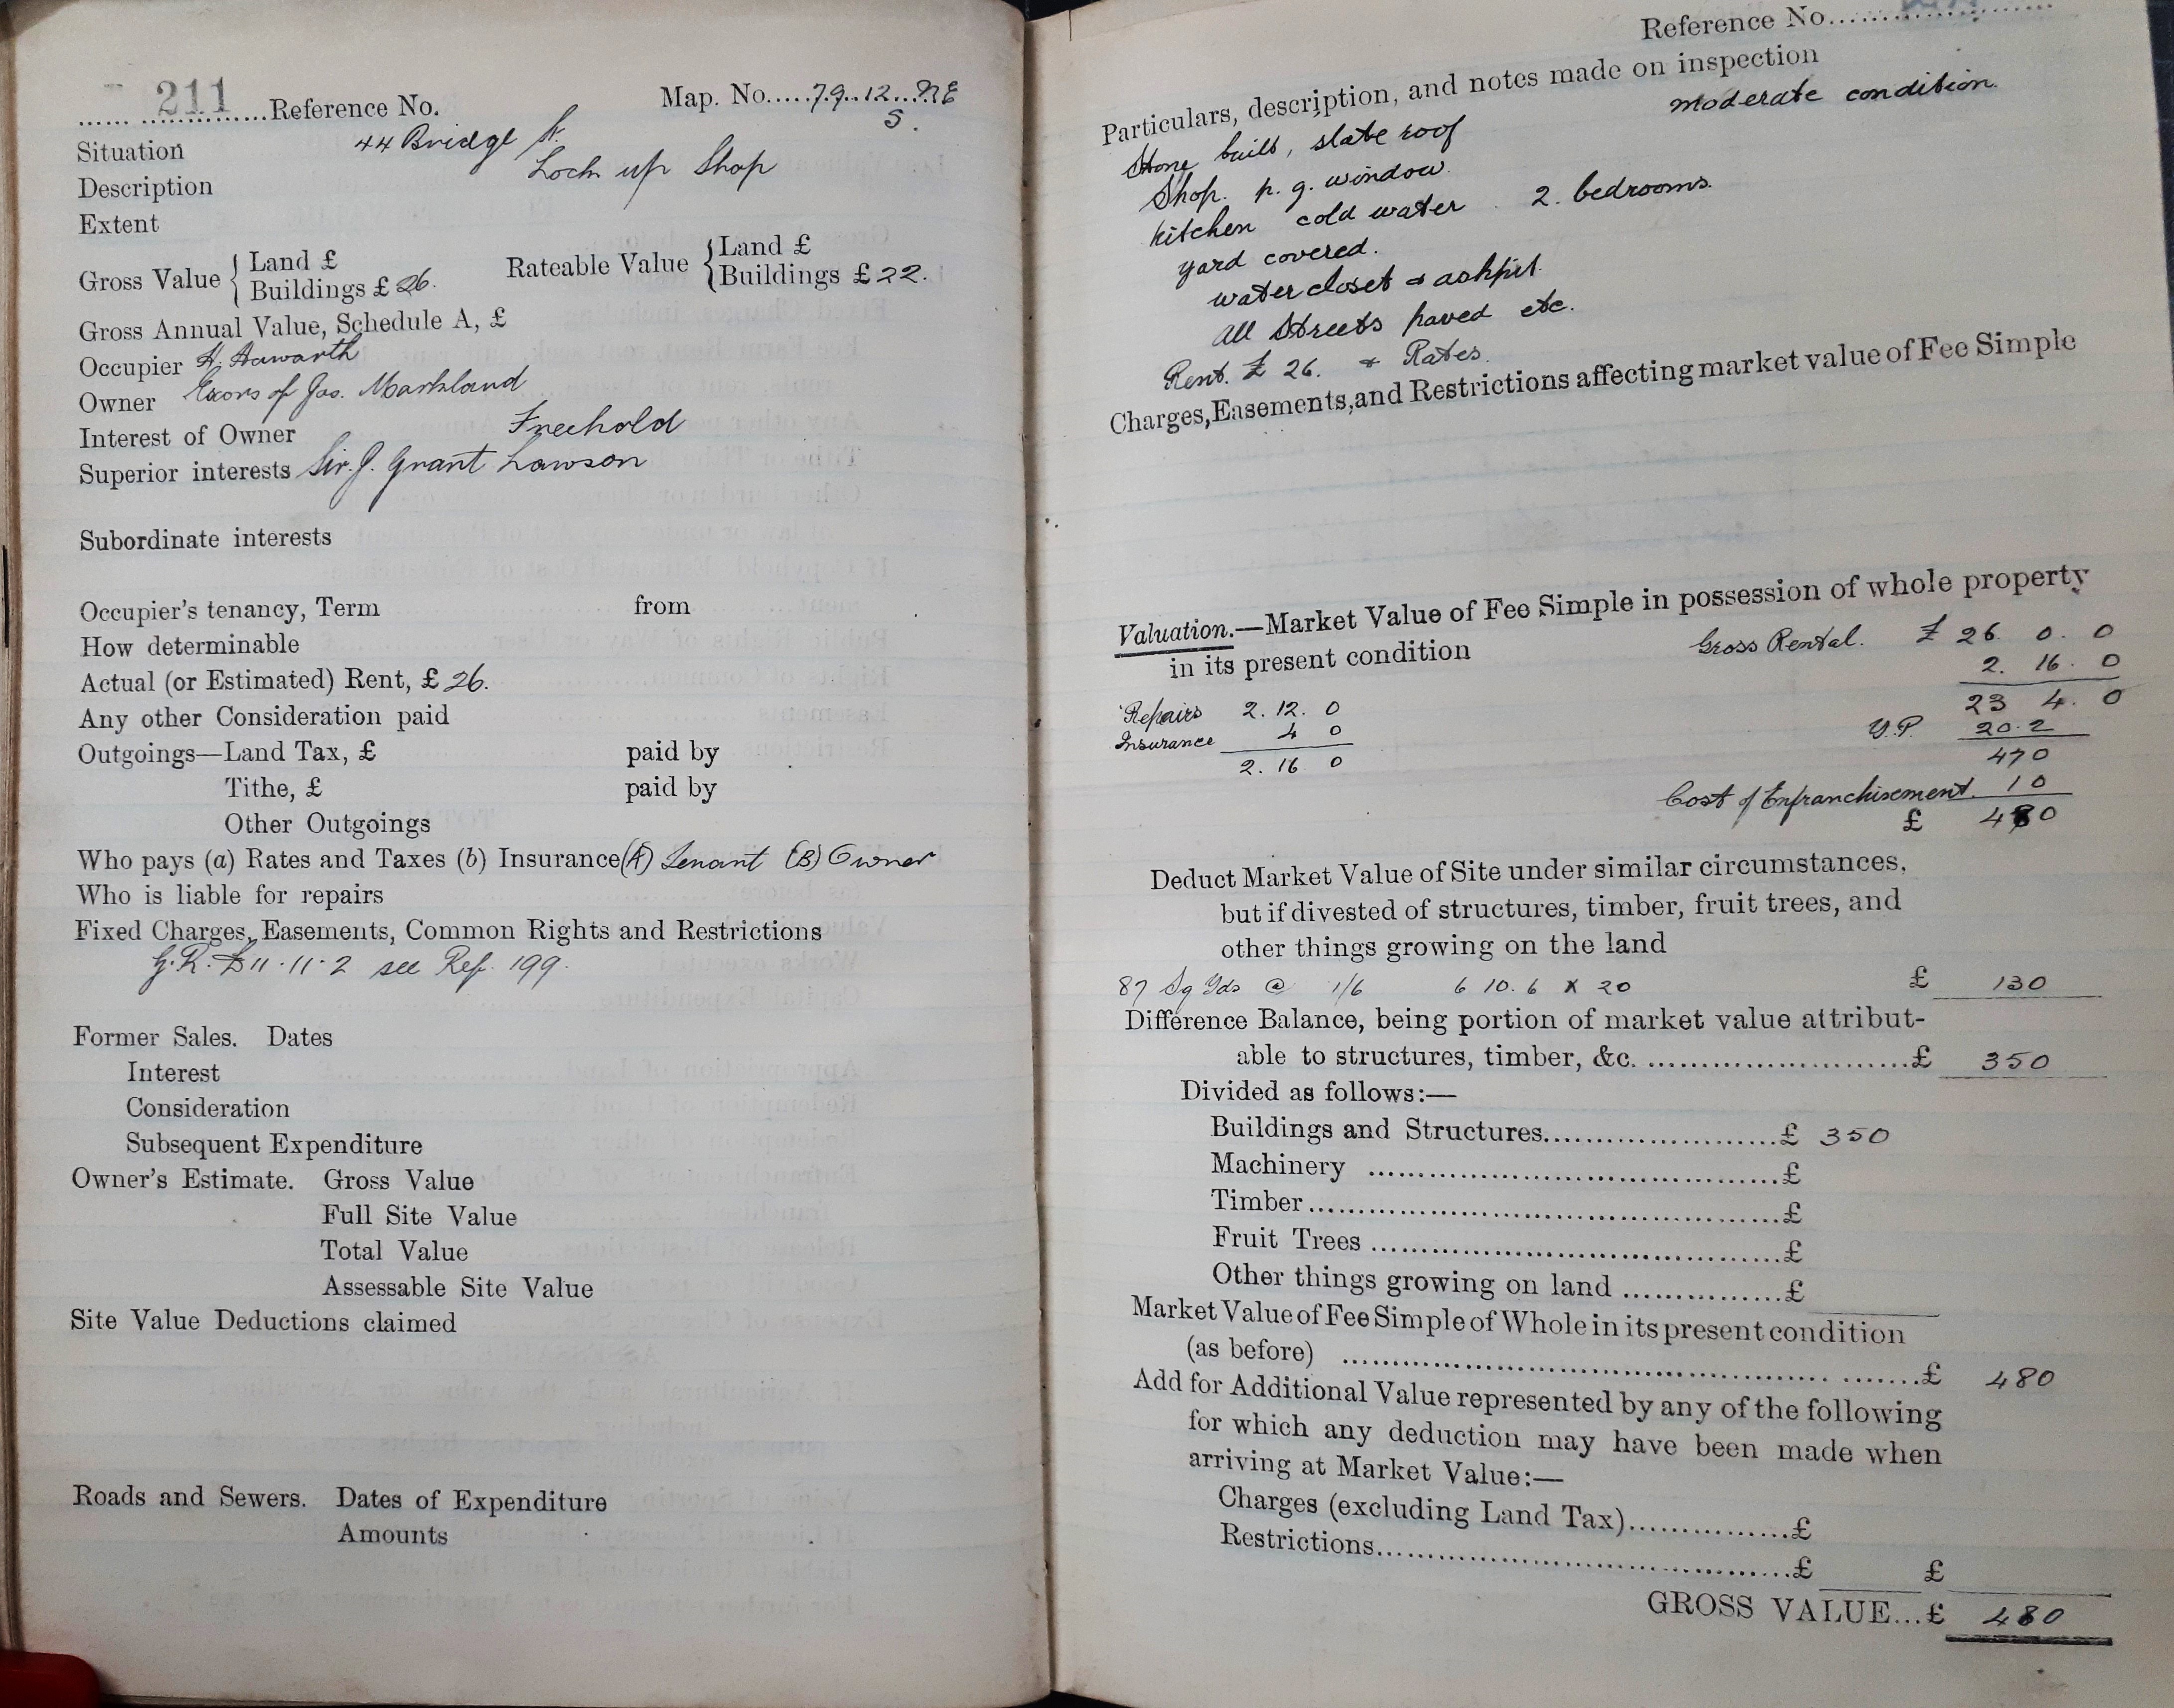 211 Reference No. Map. No. 79.12.NE
S.
Situation 44 Bridge St.
Description Lock up Shop
Extent
Gross Value { Land £ Rateable Value { Land £
Buildings £ 26. Buildings £ 22.
Gross Annual Value, Schedule A, £
Occupier H. Haworth
Owner Exors of Jas. Markland
Interest of Owner Freehold
Superior interests Sir. J. Grant Lawson
Subordinate interests
Occupier's tenancy, Term from
How determinable
Actual (or Estimated) Rent, £ 26.
Any other Consideration paid
Outgoings—Land Tax, £ paid by
Tithe, £ paid by
Other Outgoings
Who pays (a) Rates and Taxes (b) Insurance (A) Tenant (B) Owner
Who is liable for repairs
Fixed Charges, Easements, Common Rights and Restrictions
G.R. £11.11.2 see Ref. 199.
Former Sales. Dates
Interest
Consideration
Subsequent Expenditure
Owner's Estimate. Gross Value
Full Site Value
Total Value
Assessable Site Value
Site Value Deductions claimed
Roads and Sewers. Dates of Expenditure
Amounts
Reference No.
Particulars, description, and notes made on inspection
moderate condition.
Stone built, slate roof
Shop. p. g. window.
Kitchen cold water. 2. bedrooms.
yard covered.
water closet & ashpit.
All Streets paved etc.
Rent. £ 26. & Rates.
Charges, Easements, and Restrictions affecting market value of Fee Simple
Valuation.—Market Value of Fee Simple in possession of whole property
in its present condition Gross Rental. £ 26. 0. 0
2. 16. 0
Repairs 2. 12. 0 23 4. 0
Insurance 4 0 Y.P. 20.2
2. 16 0 470
Cost of Enfranchisement. 10
£ 480
Deduct Market Value of Site under similar circumstances,
but if divested of structures, timber, fruit trees, and
other things growing on the land
87 Sq Yds @ 1/6 6 10. 6 x 20 £ 130
Difference Balance, being portion of market value attribut-
able to structures, timber, &c. £ 350
Divided as follows:—
Buildings and Structures £ 350
Machinery £
Timber £
Fruit Trees £
Other things growing on land £
Market Value of Fee Simple of Whole in its present condition
(as before) £ 480
Add for Additional Value represented by any of the following
for which any deduction may have been made when
arriving at Market Value:—
Charges (excluding Land Tax) £
Restrictions £ £
GROSS VALUE...£ 480